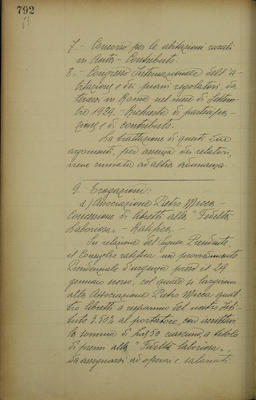 792
7. - Concorso per le abitazioni rurali
in Aosta - Contributo.
8. - Congresso Internazionale dell'a-
bitazione e dei piani regolatori, da
tenersi in Roma nel mese di Settem-
bre 1929. - Richiesta di partecipa-
zione e di contributo.
La trattazione di questi due
argomenti, per assenza dei relatori,
viene rinviata ad altra adunanza.
9. Erogazioni:
a) Associazione Pietro Micca -
Concessione di libretti alla "Fedeltà
Laboriosa". - Ratifica.
Su relazione del Signor Presidente,
il Consiglio ratifica un provvedimento
Presidenziale d'urgenza preso il 29
gennaio scorso, col quale si largivano
alla Associazione Pietro Micca quat-
tro libretti a risparmio del nostro Isti-
tuto 3.50% al portatore, con
la somma di £ 50 ciascuno, a titolo
di premi alla "Fedeltà laboriosa"
da assegnarsi ad operai e salariati